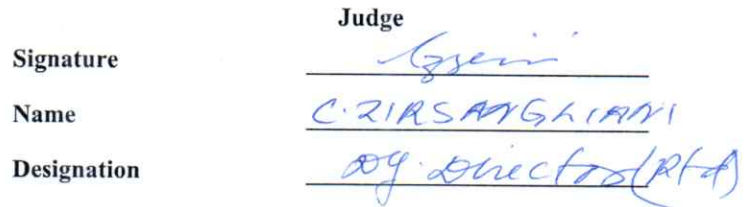 Judge
Signature
Name C. ZIRSANGLIANI
Designation Dy. Director (Rtd)